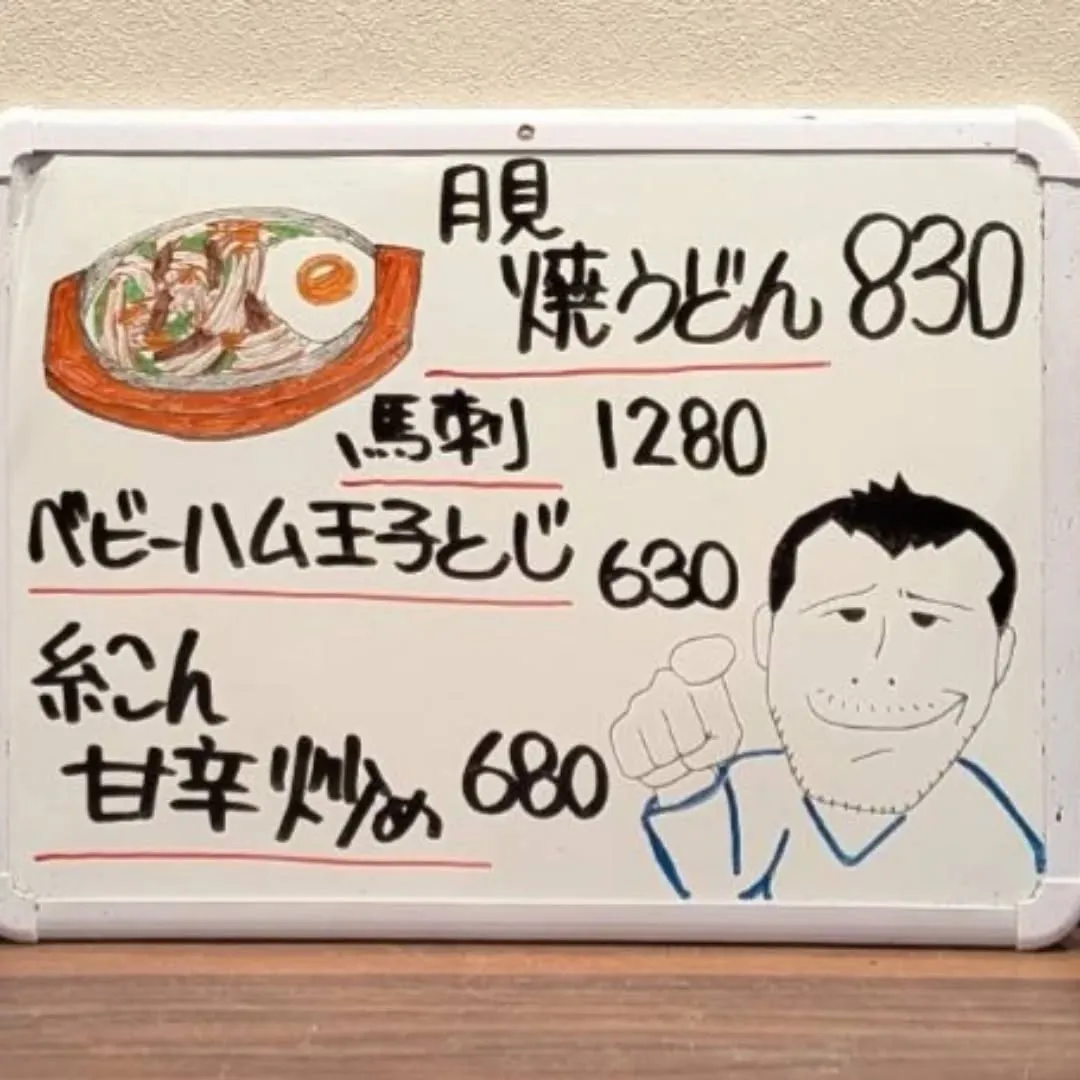 月見
焼うどん 830
馬刺 1280
ベビーハム王子とじ 630
糸こん
甘辛炒め 680